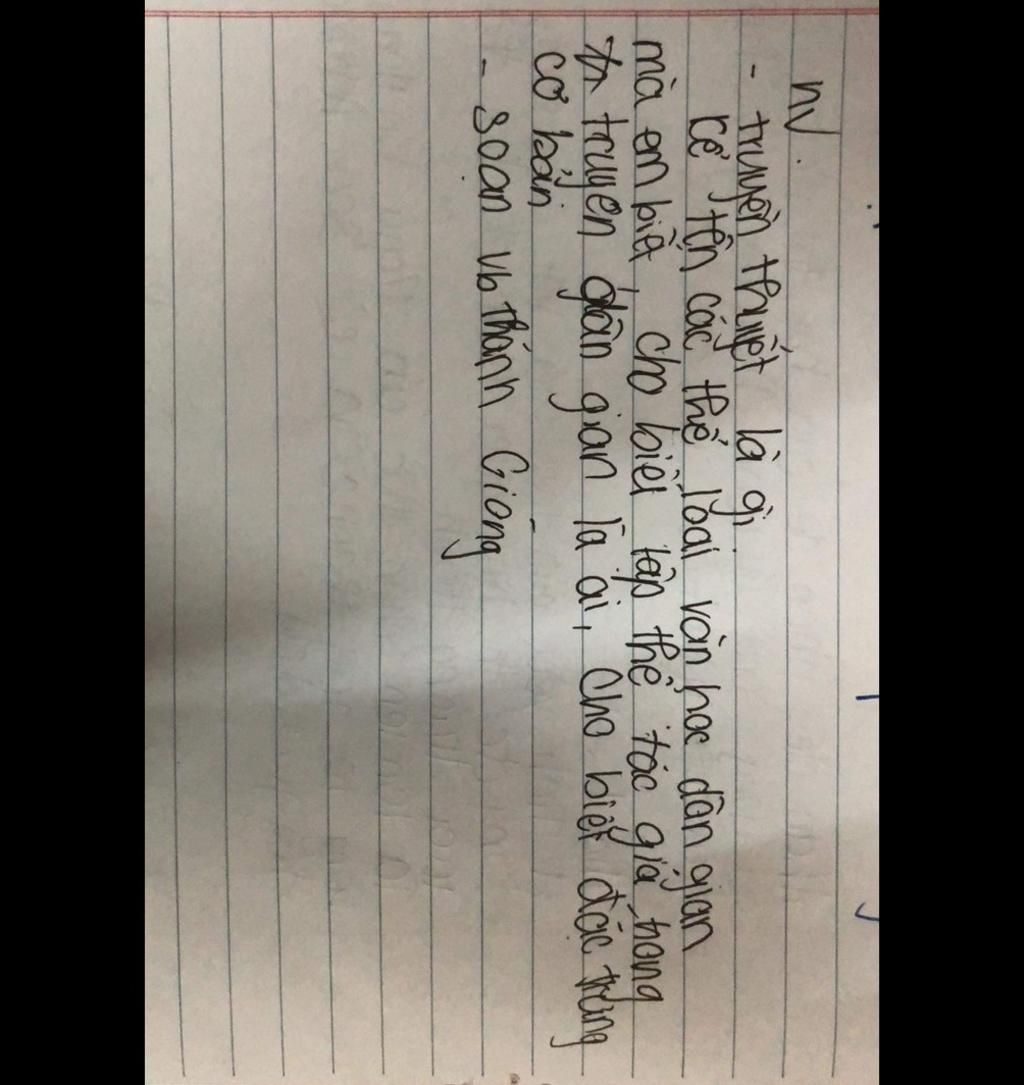 nv.
- truyền thuyết là gì
kể tên các thể loại văn học dân gian
mà em biết, cho biết tập thể tác giả trong
truyen dân gian là ai, cho biết đặc trưng
cơ bản
- soạn vb thánh Gióng